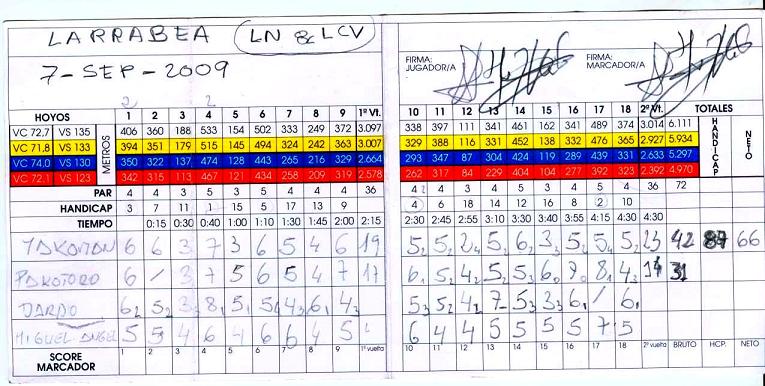 LARRABEA LN & LCV
7-SEP-2009
FIRMA: JUGADOR/A FIRMA: MARCADOR/A
2 2
HOYOS 1 2 3 4 5 6 7 8 9 1ª Vt. 10 11 12 13 14 15 16 17 18 2ª Vt. TOTALES
METROS HANDICAP NETO
VC 72,7 VS 135 406 360 188 533 154 502 333 249 372 3.097 338 397 111 341 461 162 341 489 374 3.014 6.111
VC 71,8 VS 133 394 351 179 515 145 494 324 242 363 3.007 329 388 116 331 452 138 332 465 376 2.927 5.934
VC 74,0 VS 130 350 322 137 474 128 443 265 216 329 2.664 293 347 87 304 424 119 289 439 331 2.633 5.297
VC 72,1 VS 123 342 315 113 467 121 434 258 209 319 2.578 262 317 84 229 404 104 277 392 323 2.392 4.970
PAR 4 4 3 5 3 5 4 4 4 36 4 4 3 4 5 3 4 5 4 36 72
HANDICAP 3 7 11 1 15 5 17 13 9 4 6 18 14 12 16 8 2 10
TIEMPO 0:15 0:30 0:40 1:00 1:10 1:30 1:45 2:00 2:15 2:30 2:45 2:55 3:10 3:30 3:40 3:55 4:15 4:30 4:30
6 6 3 7 3 6 5 4 6 19 5 5 2 5 6 3 5 5 5 23 42 66
PAKOTORO 6 / 3 7 5 6 5 4 7 17 6 5 4 5 5 6 8 4 31
DARDO 6 5 3 8 5 5 4 6 4 5 5 4 7 5 3 6 / 6
MIGUEL ANGEL 5 5 4 6 4 6 6 4 5 6 4 4 5 5 5 5 7 5
SCORE MARCADOR 1 2 3 4 5 6 7 8 9 1ª vuelta 10 11 12 13 14 15 16 17 18 2ª vuelta BRUTO HCP. NETO